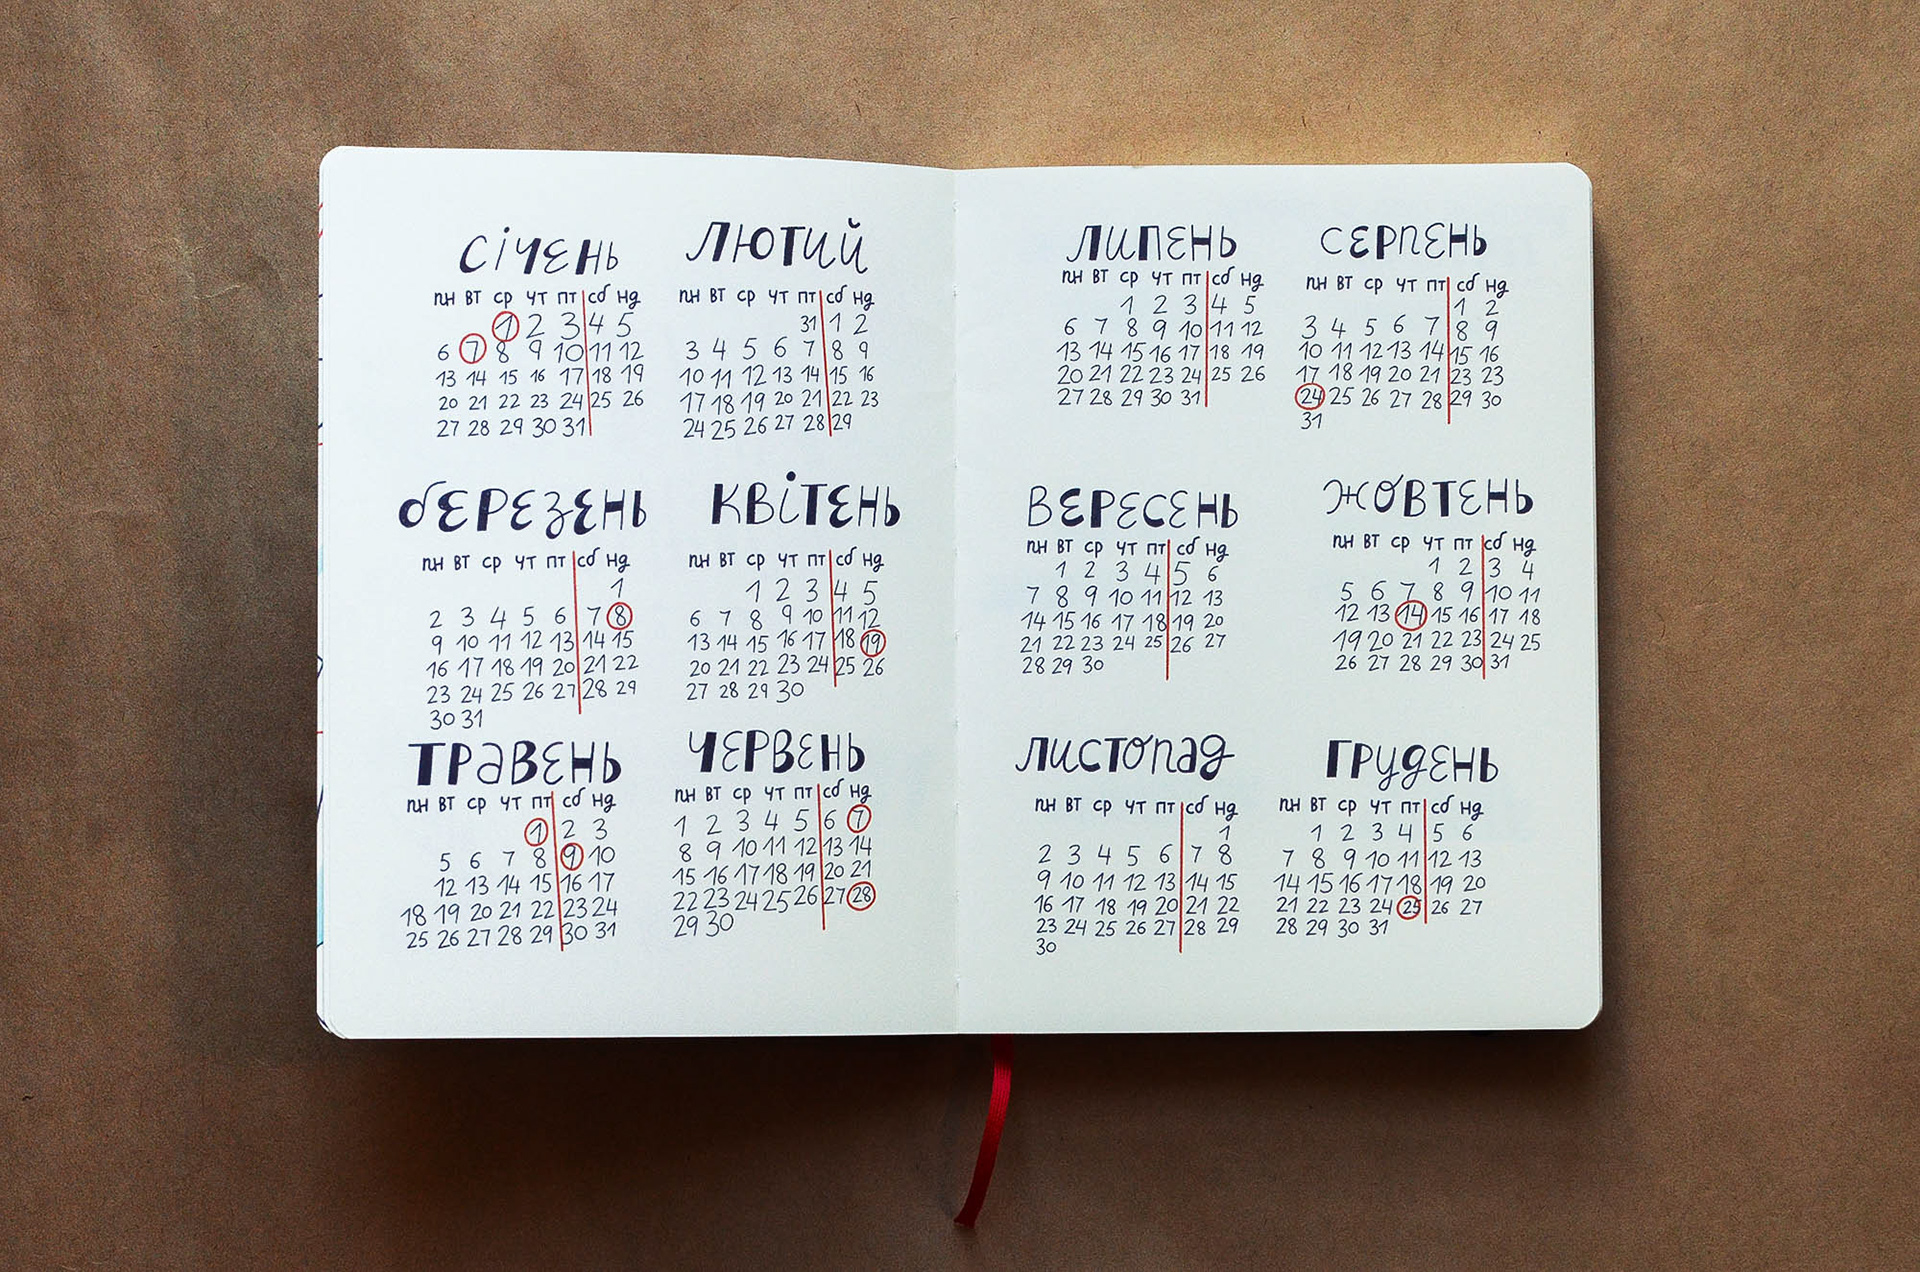 СІЧЕНЬ
ПН ВТ СР ЧТ ПТ СБ НД
1 2 3 4 5
6 7 8 9 10 11 12
13 14 15 16 17 18 19
20 21 22 23 24 25 26
27 28 29 30 31
ЛЮТИЙ
ПН ВТ СР ЧТ ПТ СБ НД
31 1 2
3 4 5 6 7 8 9
10 11 12 13 14 15 16
17 18 19 20 21 22 23
24 25 26 27 28 29
БЕРЕЗЕНЬ
ПН ВТ СР ЧТ ПТ СБ НД
1
2 3 4 5 6 7 8
9 10 11 12 13 14 15
16 17 18 19 20 21 22
23 24 25 26 27 28 29
30 31
КВІТЕНЬ
ПН ВТ СР ЧТ ПТ СБ НД
1 2 3 4 5
6 7 8 9 10 11 12
13 14 15 16 17 18 19
20 21 22 23 24 25 26
27 28 29 30
ТРАВЕНЬ
ПН ВТ СР ЧТ ПТ СБ НД
1 2 3
5 6 7 8 9 10
12 13 14 15 16 17
18 19 20 21 22 23 24
25 26 27 28 29 30 31
ЧЕРВЕНЬ
ПН ВТ СР ЧТ ПТ СБ НД
1 2 3 4 5 6 7
8 9 10 11 12 13 14
15 16 17 18 19 20 21
22 23 24 25 26 27 28
29 30
ЛИПЕНЬ
ПН ВТ СР ЧТ ПТ СБ НД
1 2 3 4 5
6 7 8 9 10 11 12
13 14 15 16 17 18 19
20 21 22 23 24 25 26
27 28 29 30 31
СЕРПЕНЬ
ПН ВТ СР ЧТ ПТ СБ НД
1 2
3 4 5 6 7 8 9
10 11 12 13 14 15 16
17 18 19 20 21 23 23
24 25 26 27 28 29 30
31
ВЕРЕСЕНЬ
ПН ВТ СР ЧТ ПТ СБ НД
1 2 3 4 5 6
7 8 9 10 11 12 13
14 15 16 17 18 19 20
21 22 23 24 25 26 27
28 29 30
ЖОВТЕНЬ
ПН ВТ СР ЧТ ПТ СБ НД
1 2 3 4
5 6 7 8 9 10 11
12 13 14 15 16 17 18
19 20 21 22 23 24 25
26 27 28 29 30 31
ЛИСТОПАД
ПН ВТ СР ЧТ ПТ СБ НД
1
2 3 4 5 6 7 8
9 10 11 12 13 14 15
16 17 18 19 20 21 22
23 24 25 26 27 28 29
30
ГРУДЕНЬ
ПН ВТ СР ЧТ ПТ СБ НД
1 2 3 4 5 6
7 8 9 10 11 12 13
14 15 16 17 18 19 20
21 22 23 24 25 26 27
28 29 30 31